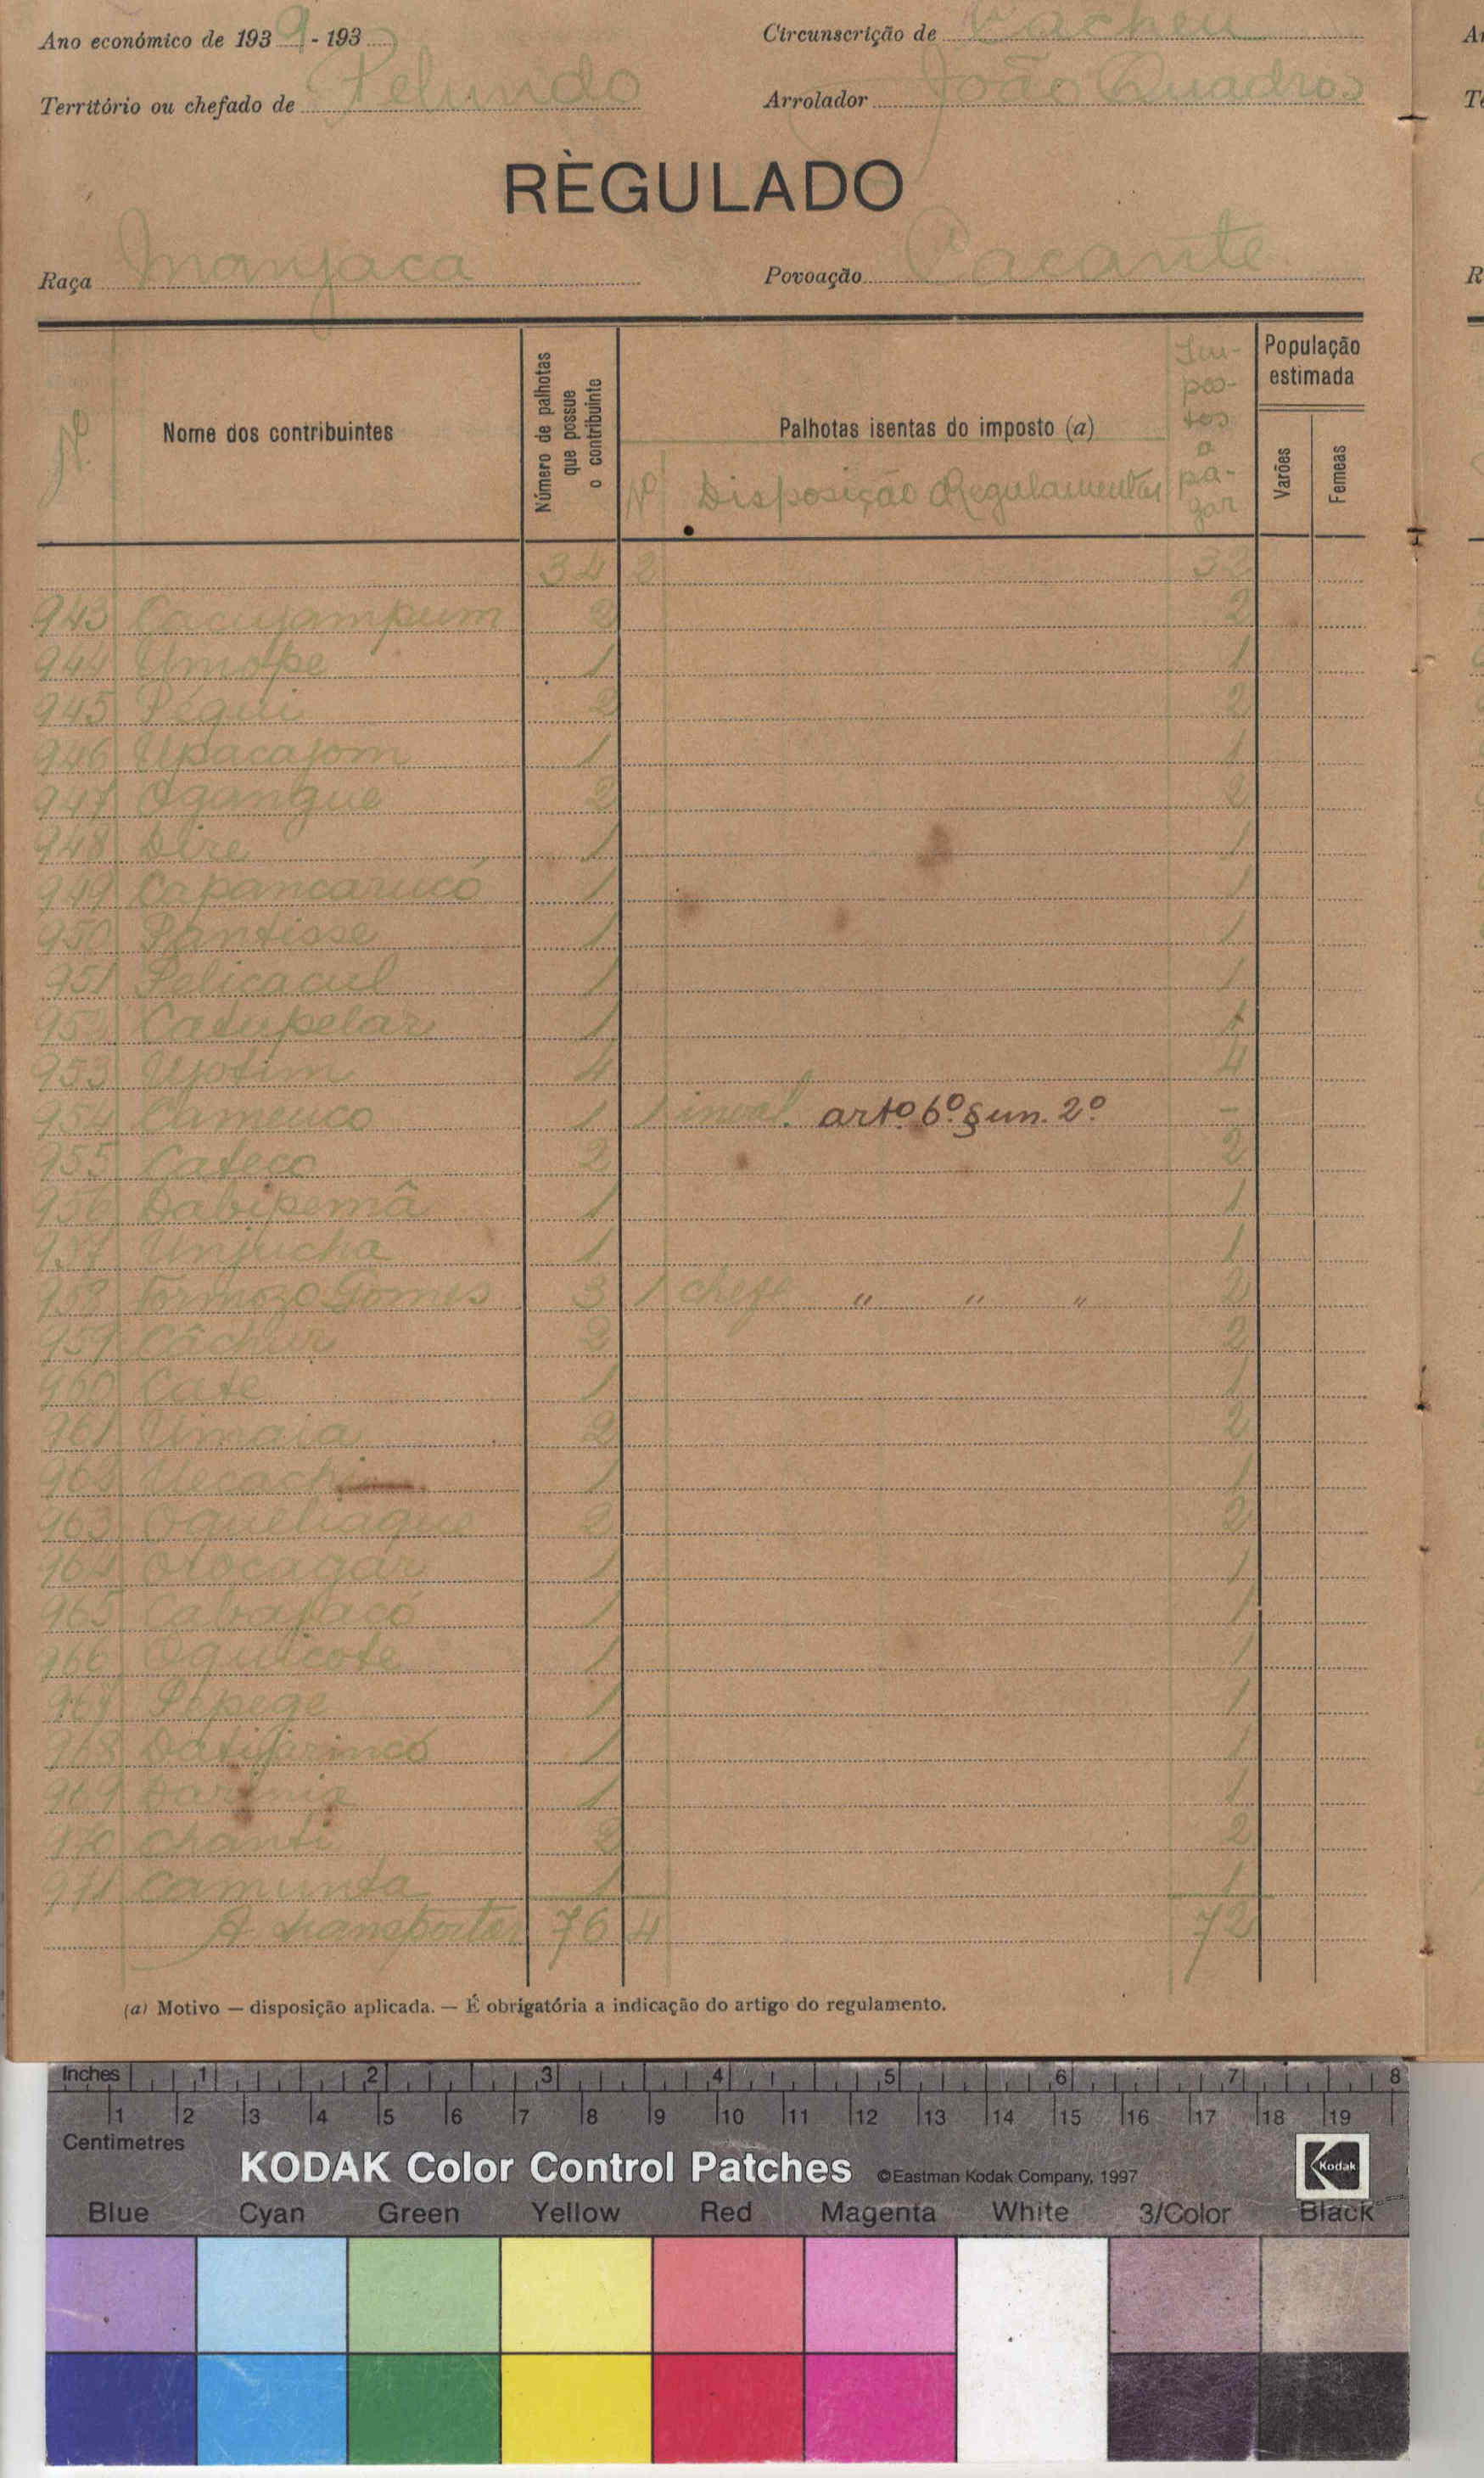 Ano económico de 1939-193
Circunscrição de Cacheu
Território ou chefado de Pelundo
Arrolador João Quadros
RÈGULADO
Raça Manjaca
Povoação Cacante
Nº
Nome dos contribuintes
Número de palhotas que possue o contribuinte
Palhotas isentas do imposto (a)
Nº Disposição Regulamentar
Impostos a pagar
População estimada
Varões
Femeas
34 2 32
943 Cacujampum 2 2
944 Umope 1 1
945 Pégui 2 2
946 Upacajom 1 1
947 Ogangue 2 2
948 Dire 1 1
949 Capancarucó 1 1
950 Pantisse 1 1
951 Pelicacul 1 1
952 Catupelar 1 1
953 Ujotim 4 4
954 Cameuco 1 1 inval. artº 6º § un. 2º -
955 Cateco 2 2
956 Dabipemã 1 1
957 Unjucha 1 1
958 Formozo Gomes 3 1 chefe " " " 2
959 Câchur 2 2
960 Cate 1 1
961 Umaia 2 2
962 1 1
963 Oqueliaque 2 2
964 Otocagar 1 1
965 Cabajacó 1 1
966 Oquicote 1 1
967 Pepege 1 1
968 Datijarincó 1 1
969 1 1
970 Chanti 2 2
971 Camunta 1 1
A transportar 76 4 72
(a) Motivo — disposição aplicada. — É obrigatória a indicação do artigo do regulamento.
Inches 1 2 3 4 5 6 7 8
1 2 3 4 5 6 7 8 9 10 11 12 13 14 15 16 17 18 19
Centimetres
KODAK Color Control Patches ©Eastman Kodak Company, 1997 Kodak
Blue Cyan Green Yellow Red Magenta White 3/Color Black